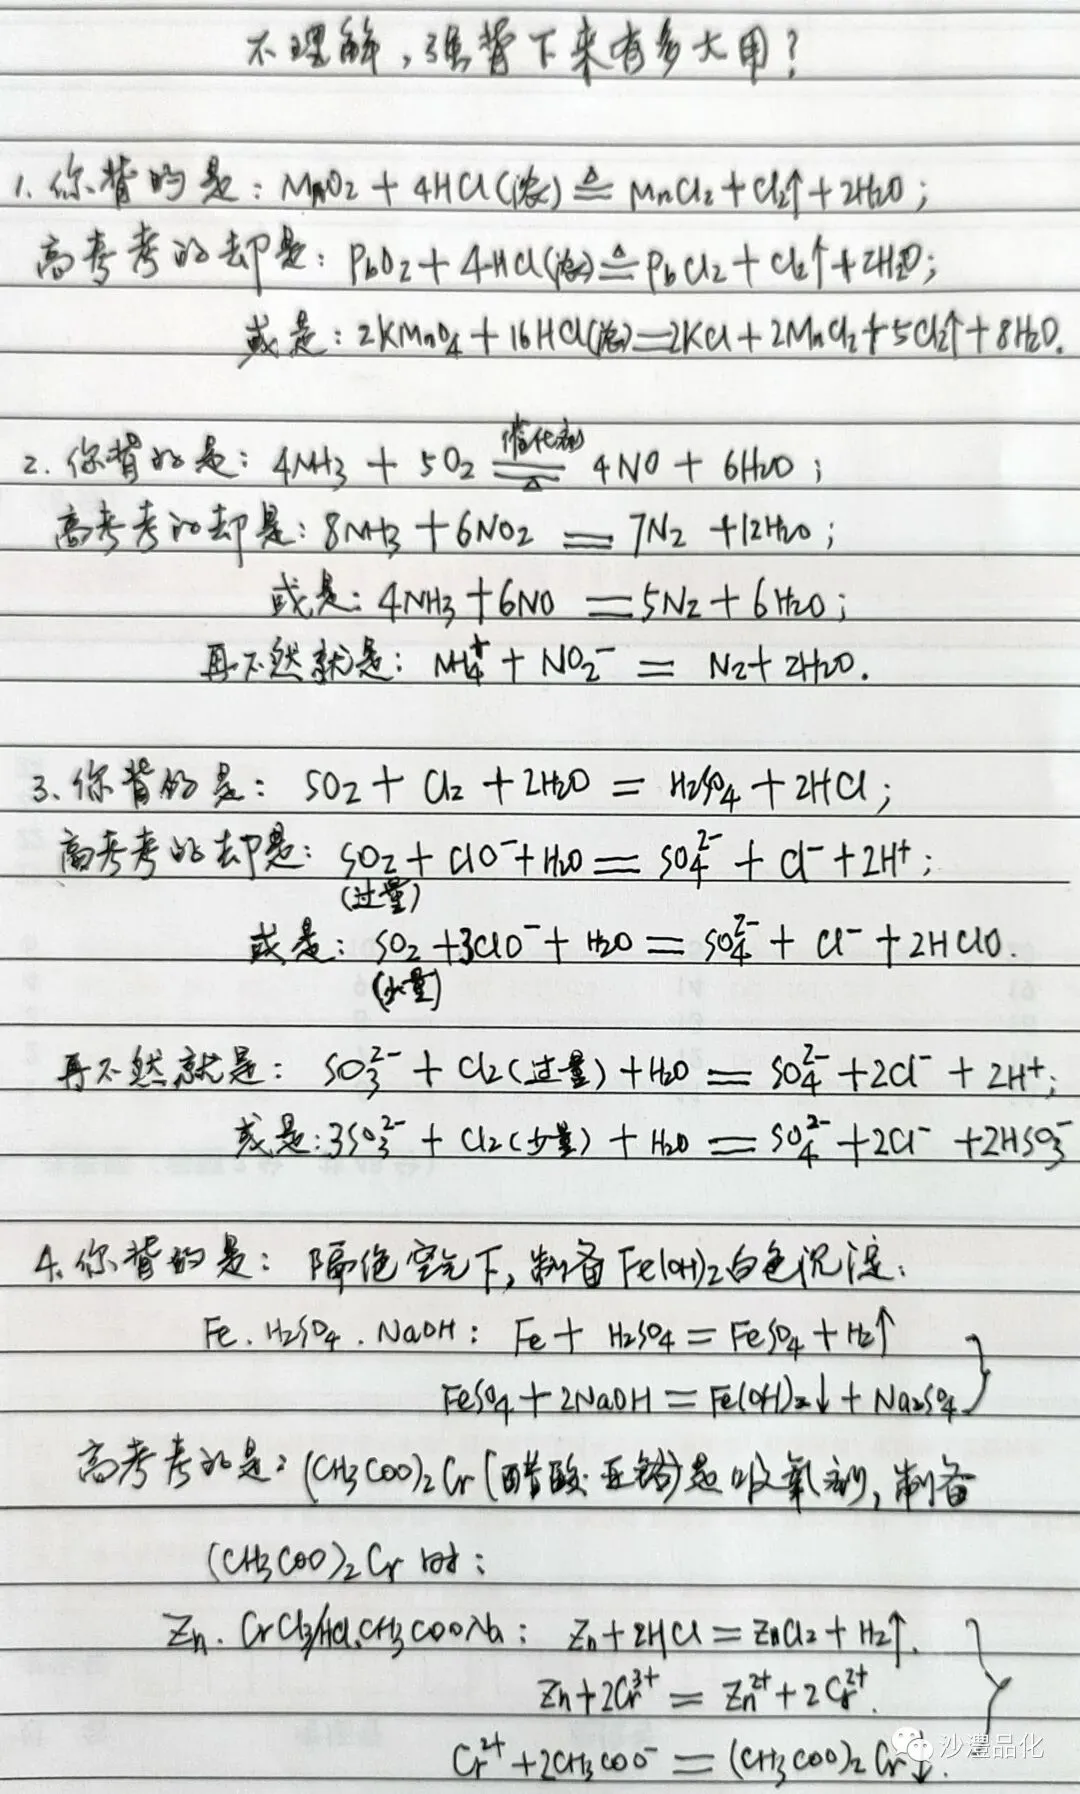 不理解，强背下来有多大用？
1. 你背的是：MnO₂ + 4HCl(浓) ≜ MnCl₂ + Cl₂↑ + 2H₂O；
高考考的却是：PbO₂ + 4HCl(浓) ≜ PbCl₂ + Cl₂↑ + 2H₂O；
或是：2KMnO₄ + 16HCl(浓) = 2KCl + 2MnCl₂ + 5Cl₂↑ + 8H₂O.
2. 你背的是：4NH₃ + 5O₂ =催化剂/△= 4NO + 6H₂O；
高考考的却是：8NH₃ + 6NO₂ = 7N₂ + 12H₂O；
或是：4NH₃ + 6NO = 5N₂ + 6H₂O；
再不然就是：NH₄⁺ + NO₂⁻ = N₂ + 2H₂O.
3. 你背的是：SO₂ + Cl₂ + 2H₂O = H₂SO₄ + 2HCl；
高考考的却是：SO₂ + ClO⁻ + H₂O = SO₄²⁻ + Cl⁻ + 2H⁺；
(过量)
或是：SO₂ + 3ClO⁻ + H₂O = SO₄²⁻ + Cl⁻ + 2HClO.
(少量)
再不然就是：SO₃²⁻ + Cl₂(过量) + H₂O = SO₄²⁻ + 2Cl⁻ + 2H⁺；
或是：3SO₃²⁻ + Cl₂(少量) + H₂O = SO₄²⁻ + 2Cl⁻ + 2HSO₃⁻
4. 你背的是：隔绝空气下，制备Fe(OH)₂白色沉淀：
Fe. H₂SO₄. NaOH：Fe + H₂SO₄ = FeSO₄ + H₂↑
FeSO₄ + 2NaOH = Fe(OH)₂↓ + Na₂SO₄
高考考的是：(CH₃COO)₂Cr(醋酸亚铬)是吸氧剂，制备
(CH₃COO)₂Cr时：
Zn. CrCl₃/HCl. CH₃COONa：Zn + 2HCl = ZnCl₂ + H₂↑.
Zn + 2Cr³⁺ = Zn²⁺ + 2Cr²⁺.
Cr²⁺ + 2CH₃COO⁻ = (CH₃COO)₂Cr↓.
沙澧品化